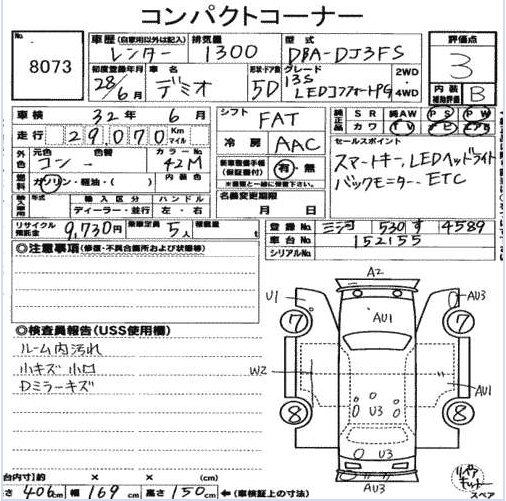 コンパクトコーナー
No. 8073
車歴(自家用以外は記入) レンター
排気量 1300
型式 DBA-DJ3FS
評価点 3
初度登録年月 28/6月
車名 デミオ
形状・ドア数 5D
グレード 13S LEDコンフォートPG
2WD・4WD
内装補助評価 B
車検 32年 6月
走行 29070 Km マイル
シフト FAT
冷房 AAC
純正品 SR 純AW PS PW
カワ TV ナビ エアB
セールスポイント
スマートキー、LEDヘッドライト
バックモニター、ETC
外色 元色 コン 色替 カラーNo. 42M
燃料 ガソリン・軽油・( ) 内装色
新車整備手帳(保証書付) 有・無
※書類と一緒に保管下さい。
輸入車 年式 輸入区分 ハンドル
ディーラー・並行 左・右
名義変更期限
月 日
リサイクル預託金 9,730円 乗車定員 5人 積載量 t
登録No. 三河 530 す 4589
車台No. 152155
シリアルNo.
◎注意事項(修復・不具合箇所および状態等)
◎検査員報告(USS使用欄)
ルーム内汚れ
小キズ 小凹
Dミラーキズ
A2
U1
AU3
7
7
AU1
W2
AU1
8
8
U3
U3
AU3
スペア
台内寸)約 × × (cm)
さ 406cm 幅 169cm 高さ 150cm ←(車検証上の寸法)